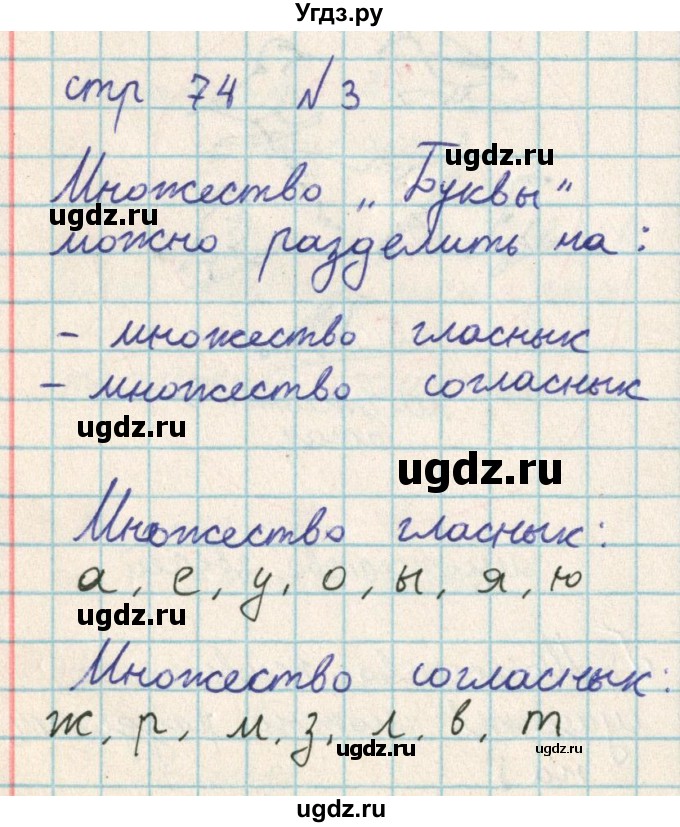 Угдз.ру
стр 74 №3
ugdz.ru
Множество „Буквы“
ugdz.ru
можно разделить на:
- множество гласных
- множество согласных
ugdz.ru
ugdz.ru
Множество гласных:
а, е, у, о, ы, я, ю
ugdz.ru
Множество согласных:
ж, р, м, з, л, в, т
ugdz.ru ugdz.ru
ugdz.ru